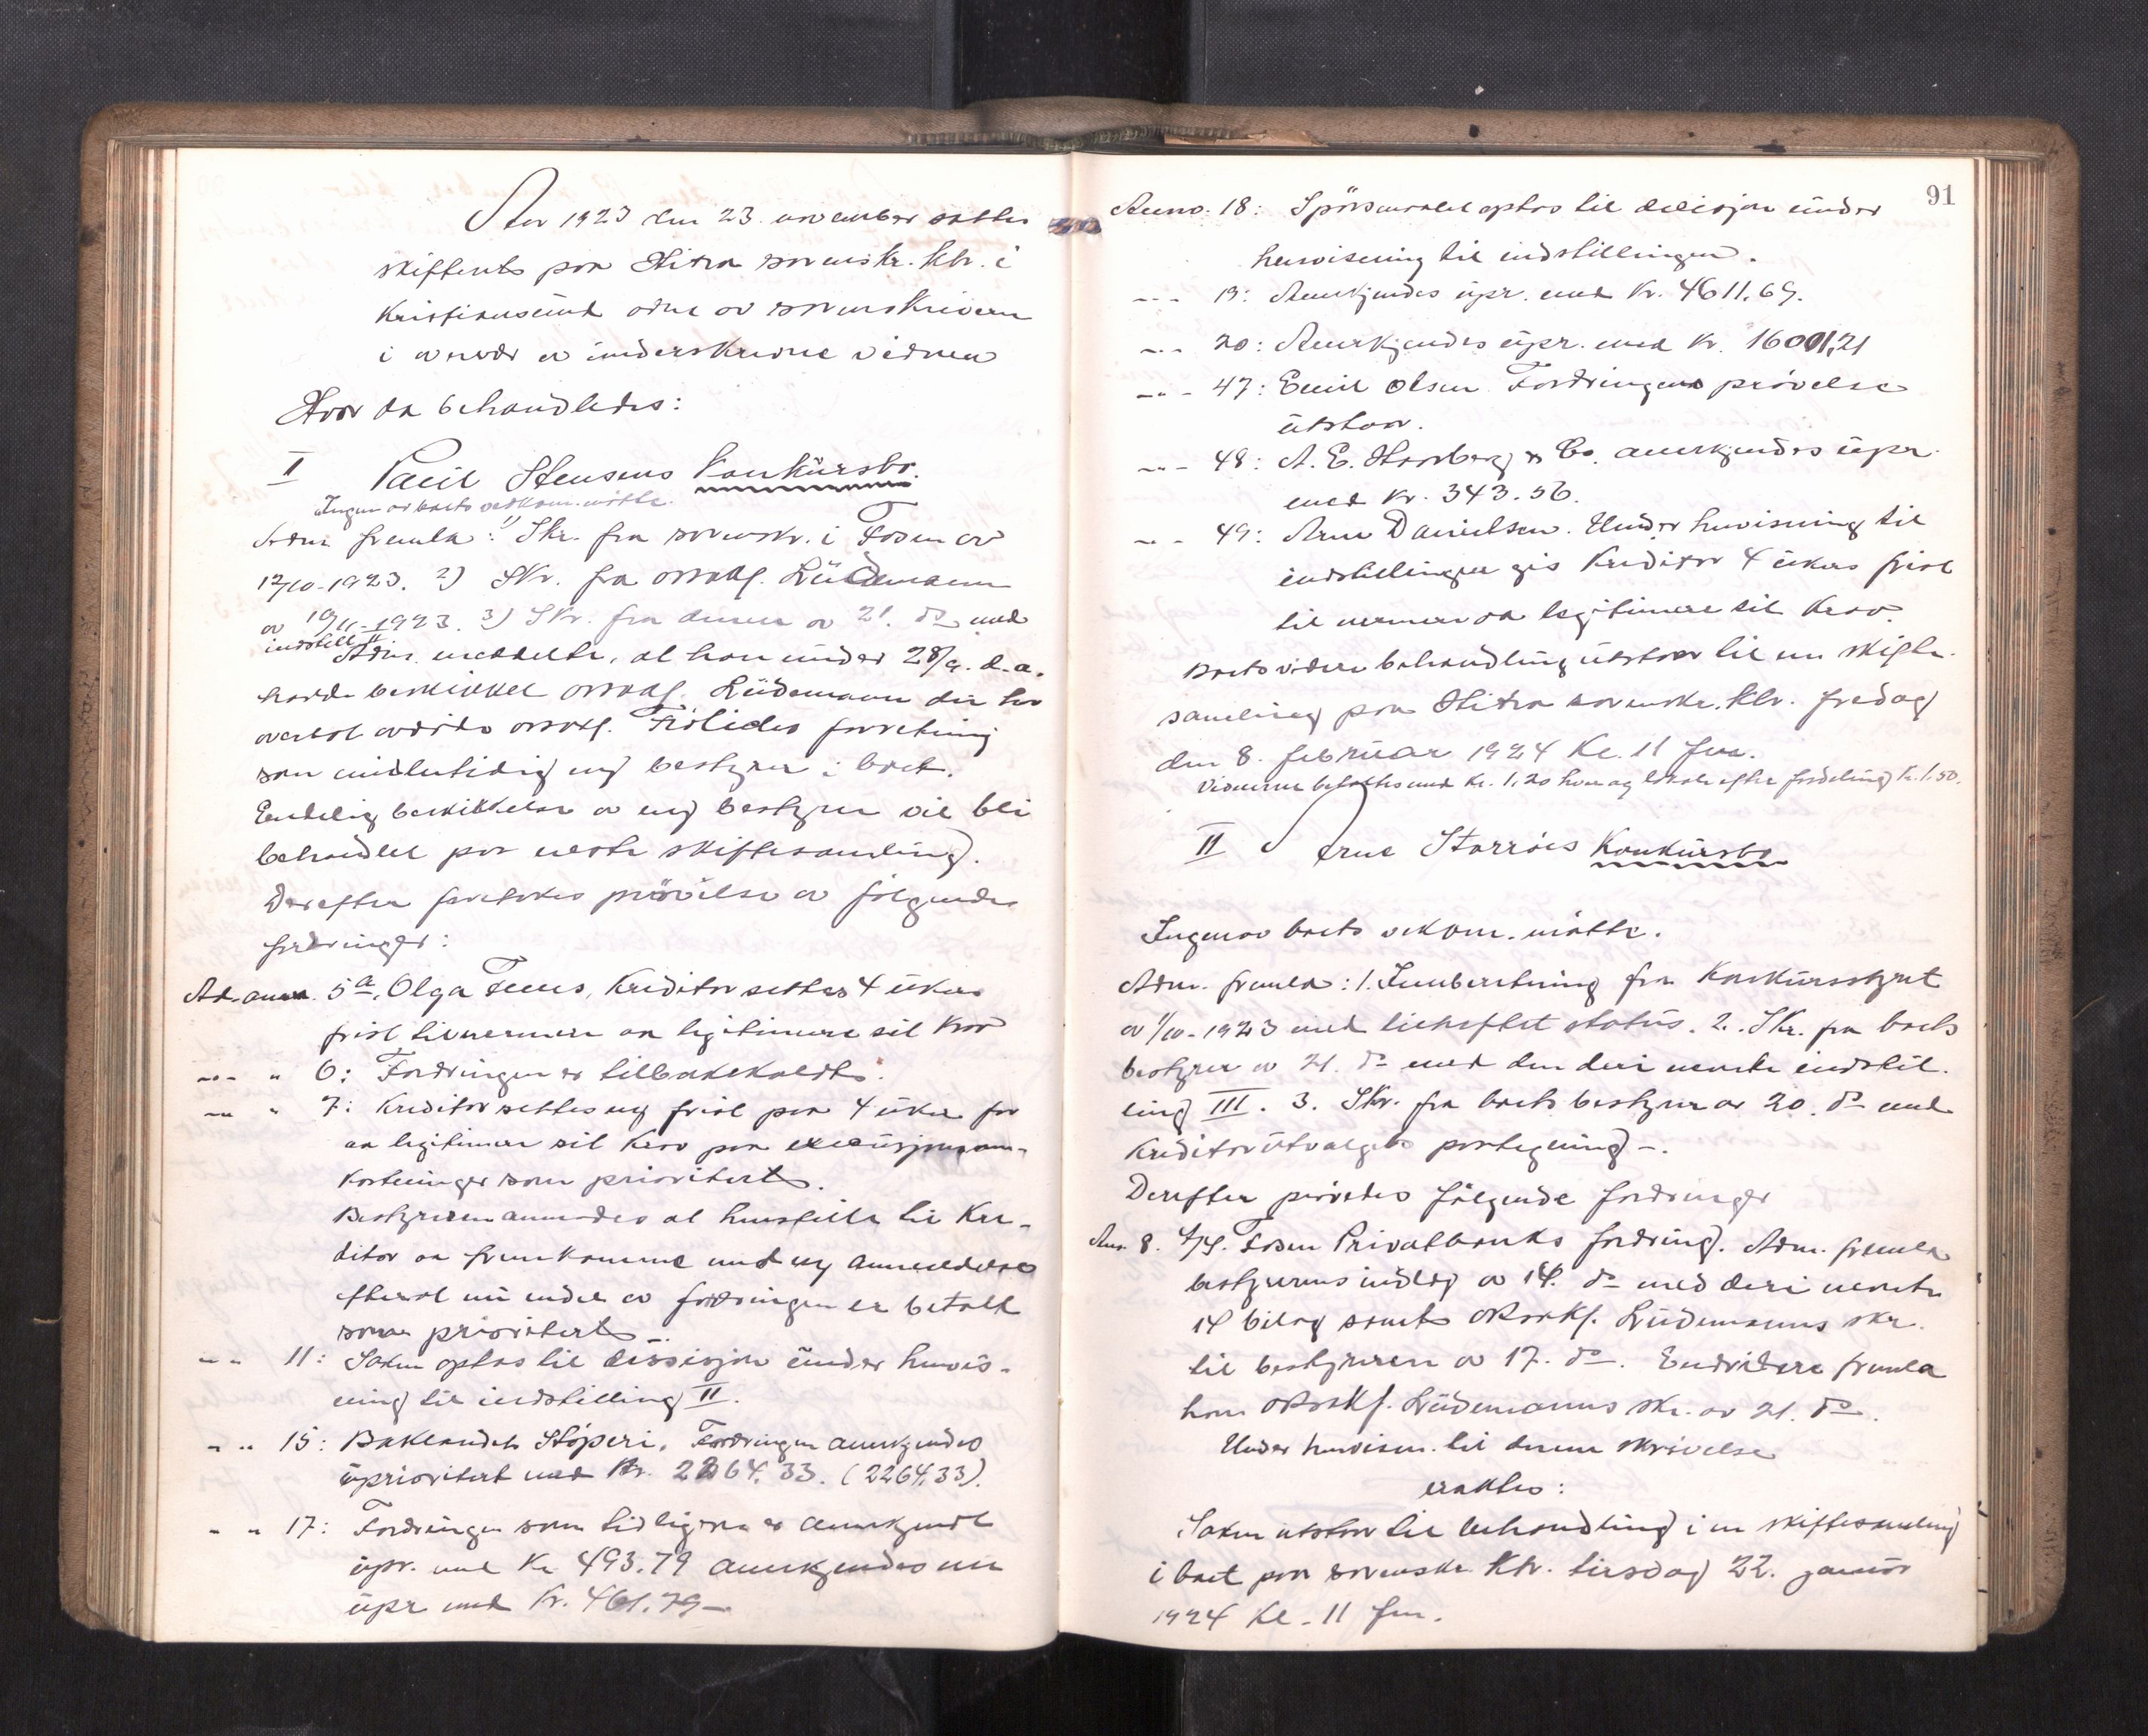 Aar 1923 den 23. november sattes
skifteret paa Hitra sorenskr. ktr. i
Kristiansund adm av sorenskriveren
i nærvær av underskrevne vidner
Hvor da behandledes:
I Paul Stensens Konkursbo.
Ingen av boets vedkom. møtte.
Adm fremla: 1) Skr. fra sorenskr. i Fosen av
12/10-1923. 2) Skr. fra orsakf. Lüdemann
av 19/11-1923. 3) Skr. fra denne av 21. do med
indstill. II
Adm. meddelte, at han under 28/9. d.a.
hadde beskikket orsakf. Lüdemann der har
overtat avdøde orsakf. forretning
som midlertidig ny bestyrer i boet.
Endelig beskikkelse av ny bestyrer vil bli
behandlet paa neste skiftesamling.
Derefter foretokes prøvelse av følgende
fordringer:
Ad. anm. 5a. Olga Kreditor settes 4 ukers
frist til nærmere aa legitimere sit krav
-"- " 6: Fordringen er tilbakekaldt.
-"- " 7: Kreditor settes ny frist paa 4 uker for
aa legitimere sit krav paa executionsom-
kostninger som prioritert.
Bestyreren anmodes at henstille til Kre-
ditor aa fremkomme med ny anmeldelse
efterat nu endel av fordringen er betalt
som prioritert -.
-"- 11: Saken optas til desisjon under henvis-
ning til indstilling II.
-"- 15: Baklandets Støperi. Fordringen anerkjendes
uprioritert med Kr. 2264.33. (2264.33).
-"- 17: Fordringen som tidligere er anerkjendt
upr. med Kr 493.79 anerkjendes nu
upr med Kr. 461.79-
91
Anm. 18: Spørsmaalet optas til decisjon under
henvisning til indstillingen.
-"- 19: Anerkjendes upr. med Kr. 4611.69.
-"- 20: Anerkjendes upr. med Kr. 1601,21
-"- 47: Emil Olsen Fordringens prøvelse
utstaar.
-"- 48: A. E. & Co. anerkjendes upr.
med Kr. 343.56.
-"- 49: Arne Danielsen. Under henvisning til
indstillingen gis Kreditor 4 ukers frist
til nærmere aa legitimere sit Krav.
Boets videre behandling utstaar til en skifte-
samling paa Hitra sorenskr. ktr. fredag
den 8. februar 1924 Kl. 11 fm.
Vidnerne betaltes med Kr. 1.20 hver og lokale efter fordeling Kr. 1.50.
II Arne Størröis Konkursbo
Ingen av boets vedkom. møtte.
Adm. fremla: 1. Innberetning fra Konkursstyret
av 1/10-1923 med tilheftet status. 2. Skr. fra boets
bestyrer av 21. do med den deri nevnte indstil-
ling III. 3. Skr. fra boets bestyrer av 20. do med
Kreditorutvalgets paategning -.
Derefter prøvedes følgende fordringer
Anm. 8. A/S. Fosen Privatbanks fordring. Adm. fremla
bestyrerens indlæg av 14. do med deri nevnte
14 bilag samt Orsakf. Lüdemanns skr.
til bestyreren av 17. do. Endvidere fremla
han Orsakf. Lüdemanns skr. av 21. do.
Under henvisn. til denne skrivelse
eraktes:
Saken utstaar til behandling i en skiftesamling
i boet paa sorenskr. Ktr. tirsdag 22. januar
1924 Kl. 11 fm.